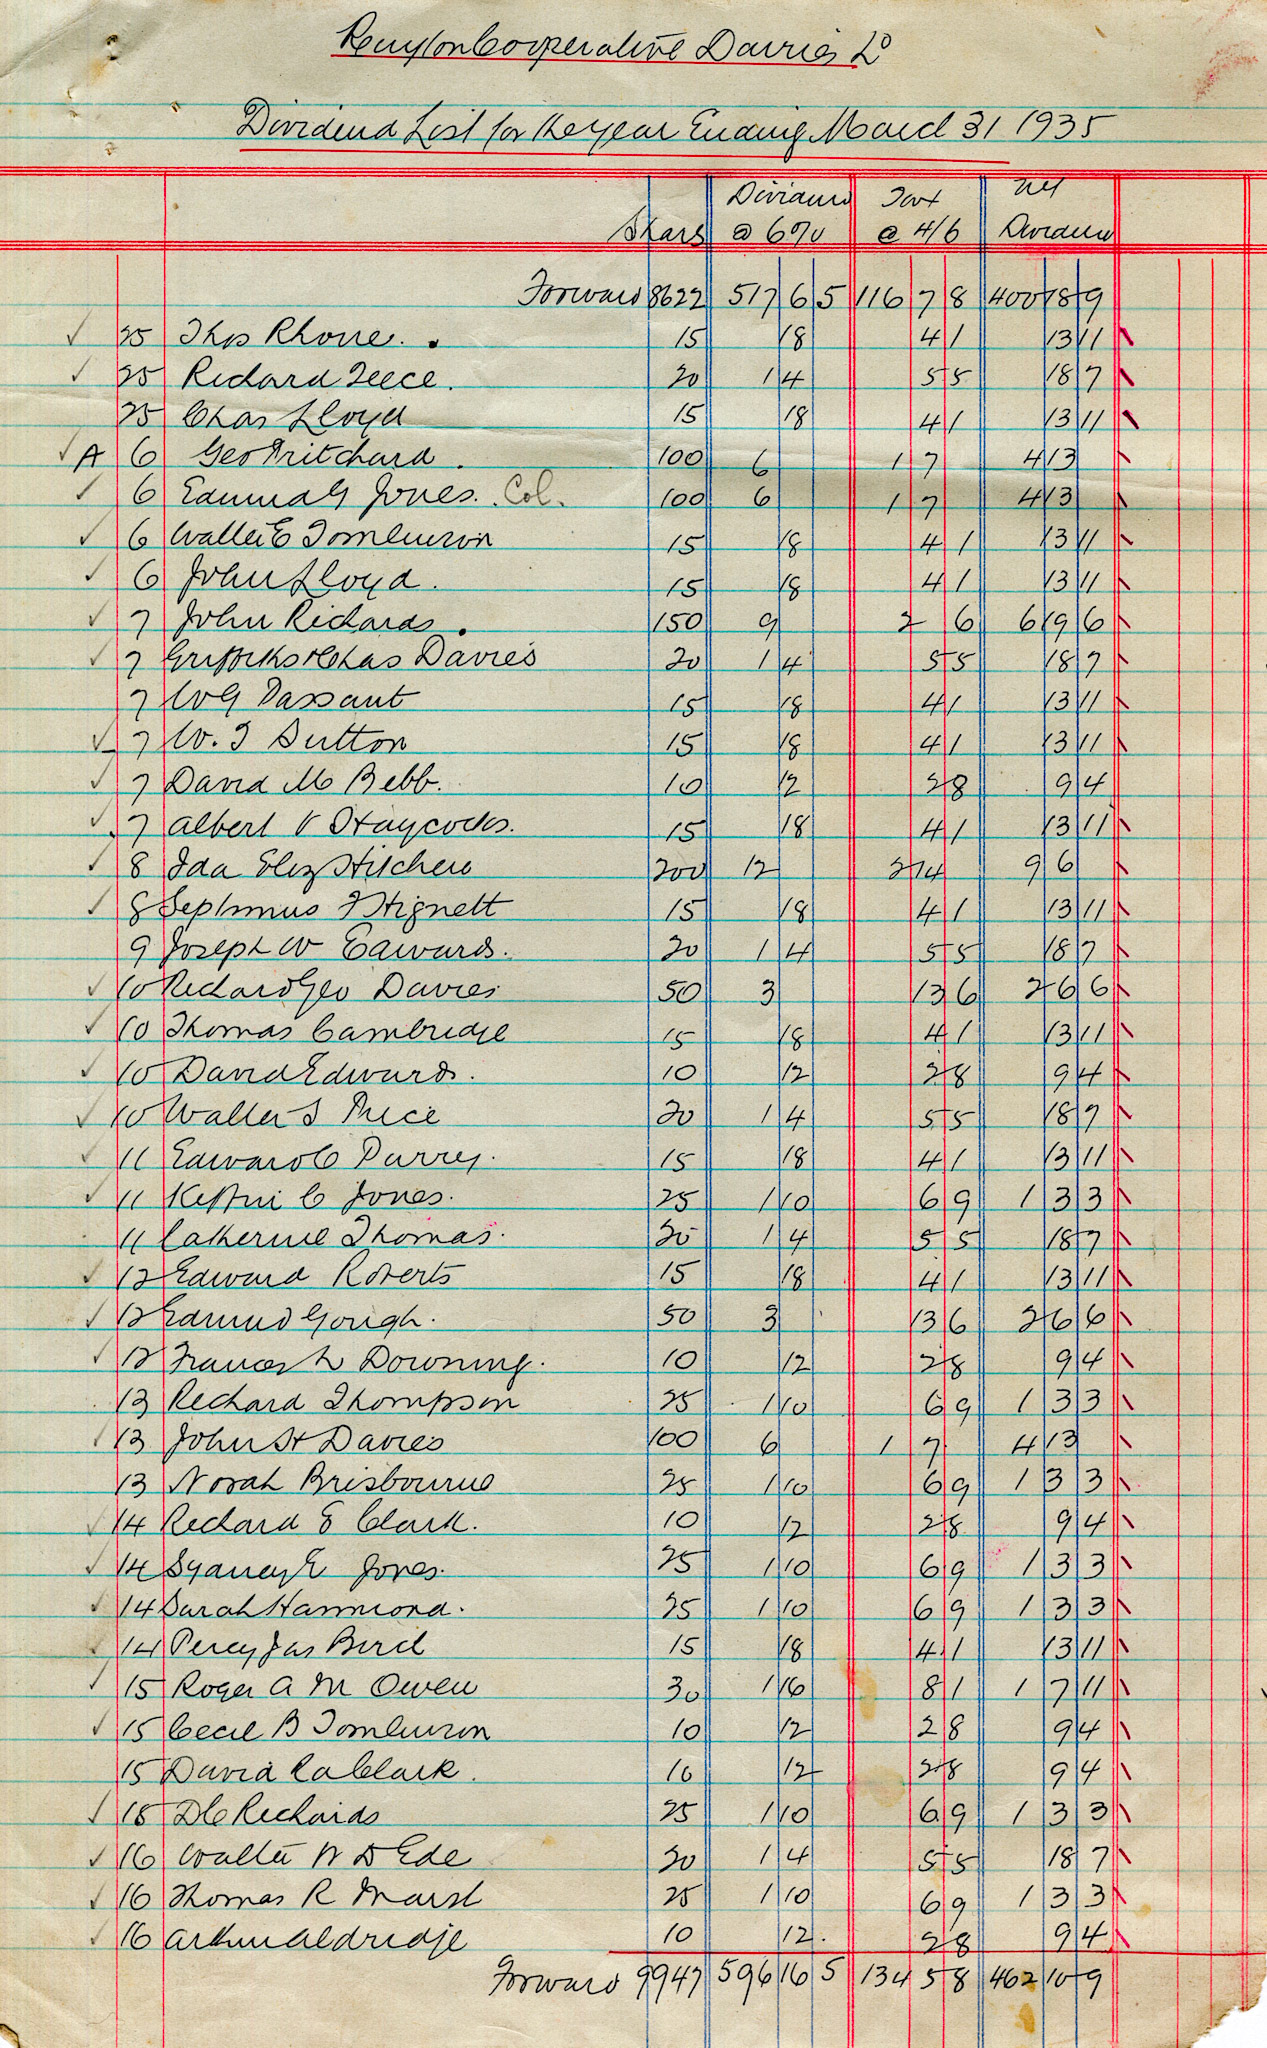 Ruyton Cooperative Dairies Ld
Dividend List for the year Ending March 31 1935
Shares Dividend @ 6% Tax @ 4/6 Net Dividend
Forward 8622 517 6 5 116 7 8 400 18 9
25 Thos Rhone. 15 18 4 1 13 11
25 Richard Teece. 20 1 4 5 5 18 7
25 Chas Lloyd 15 18 4 1 13 11
A 6 Geo Pritchard. 100 6 1 7 4 13
6 Edmund G Jones. Col. 100 6 1 7 4 13
6 Walter E Tomlinson 15 18 4 1 13 11
6 John Lloyd. 15 18 4 1 13 11
7 John Richards. 150 9 2 6 6 19 6
7 Griffiths & Chas Davies 20 1 4 5 5 18 7
7 W G Passant 15 18 4 1 13 11
7 W. T Sutton 15 18 4 1 13 11
7 David M Bebb. 10 12 2 8 9 4
7 Albert V Haycocks. 15 18 4 1 13 11
8 Ida Eliz Hitchen 200 12 2 14 9 6
8 Septimus T Hignett 15 18 4 1 13 11
9 Joseph W Edwards. 20 1 4 5 5 18 7
10 Richard Geo Davies 50 3 13 6 2 6 6
10 Thomas Cambridge 15 18 4 1 13 11
10 David Edwards. 10 12 2 8 9 4
10 Walter S Price 20 1 4 5 5 18 7
11 Edward C Parry. 15 18 4 1 13 11
11 C Jones. 25 1 10 6 9 1 3 3
11 Catherine Thomas. 20 1 4 5 5 18 7
12 Edward Roberts 15 18 4 1 13 11
12 Edmund Gough. 50 3 13 6 2 6 6
12 Frances L Downing. 10 12 2 8 9 4
13 Richard Thompson 25 1 10 6 9 1 3 3
13 John H Davies 100 6 1 7 4 13
13 Norah Brisbourne 25 1 10 6 9 1 3 3
14 Richard E Clark. 10 12 2 8 9 4
14 Sydney E Jones. 25 1 10 6 9 1 3 3
14 Sarah Hammond. 25 1 10 6 9 1 3 3
14 Percy Jas Bird 15 18 4 1 13 11
15 Roger A M Owen 30 1 16 8 1 1 7 11
15 Cecil B Tomlinson 10 12 2 8 9 4
15 David Clark. 10 12 2 8 9 4
15 D C Richards 25 1 10 6 9 1 3 3
16 Walter W D Ede 20 1 4 5 5 18 7
16 Thomas R Marsh 25 1 10 6 9 1 3 3
16 Arthur Aldridge 10 12. 2 8 9 4
Forward 9947 596 16 5 134 5 8 462 10 9